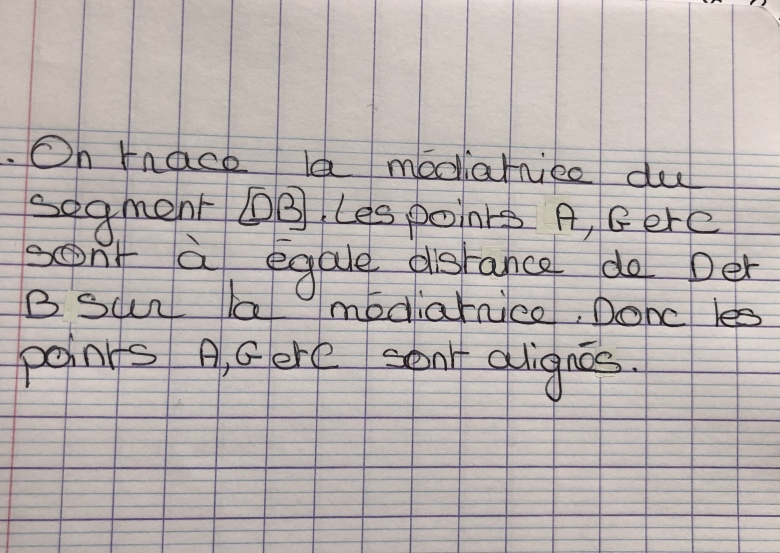 . On trace la médiatrice du
segment [DB]. Les points A, G et C
sont à égale distance de D et
B sur la médiatrice. Donc les
points A, G et C sont alignés.